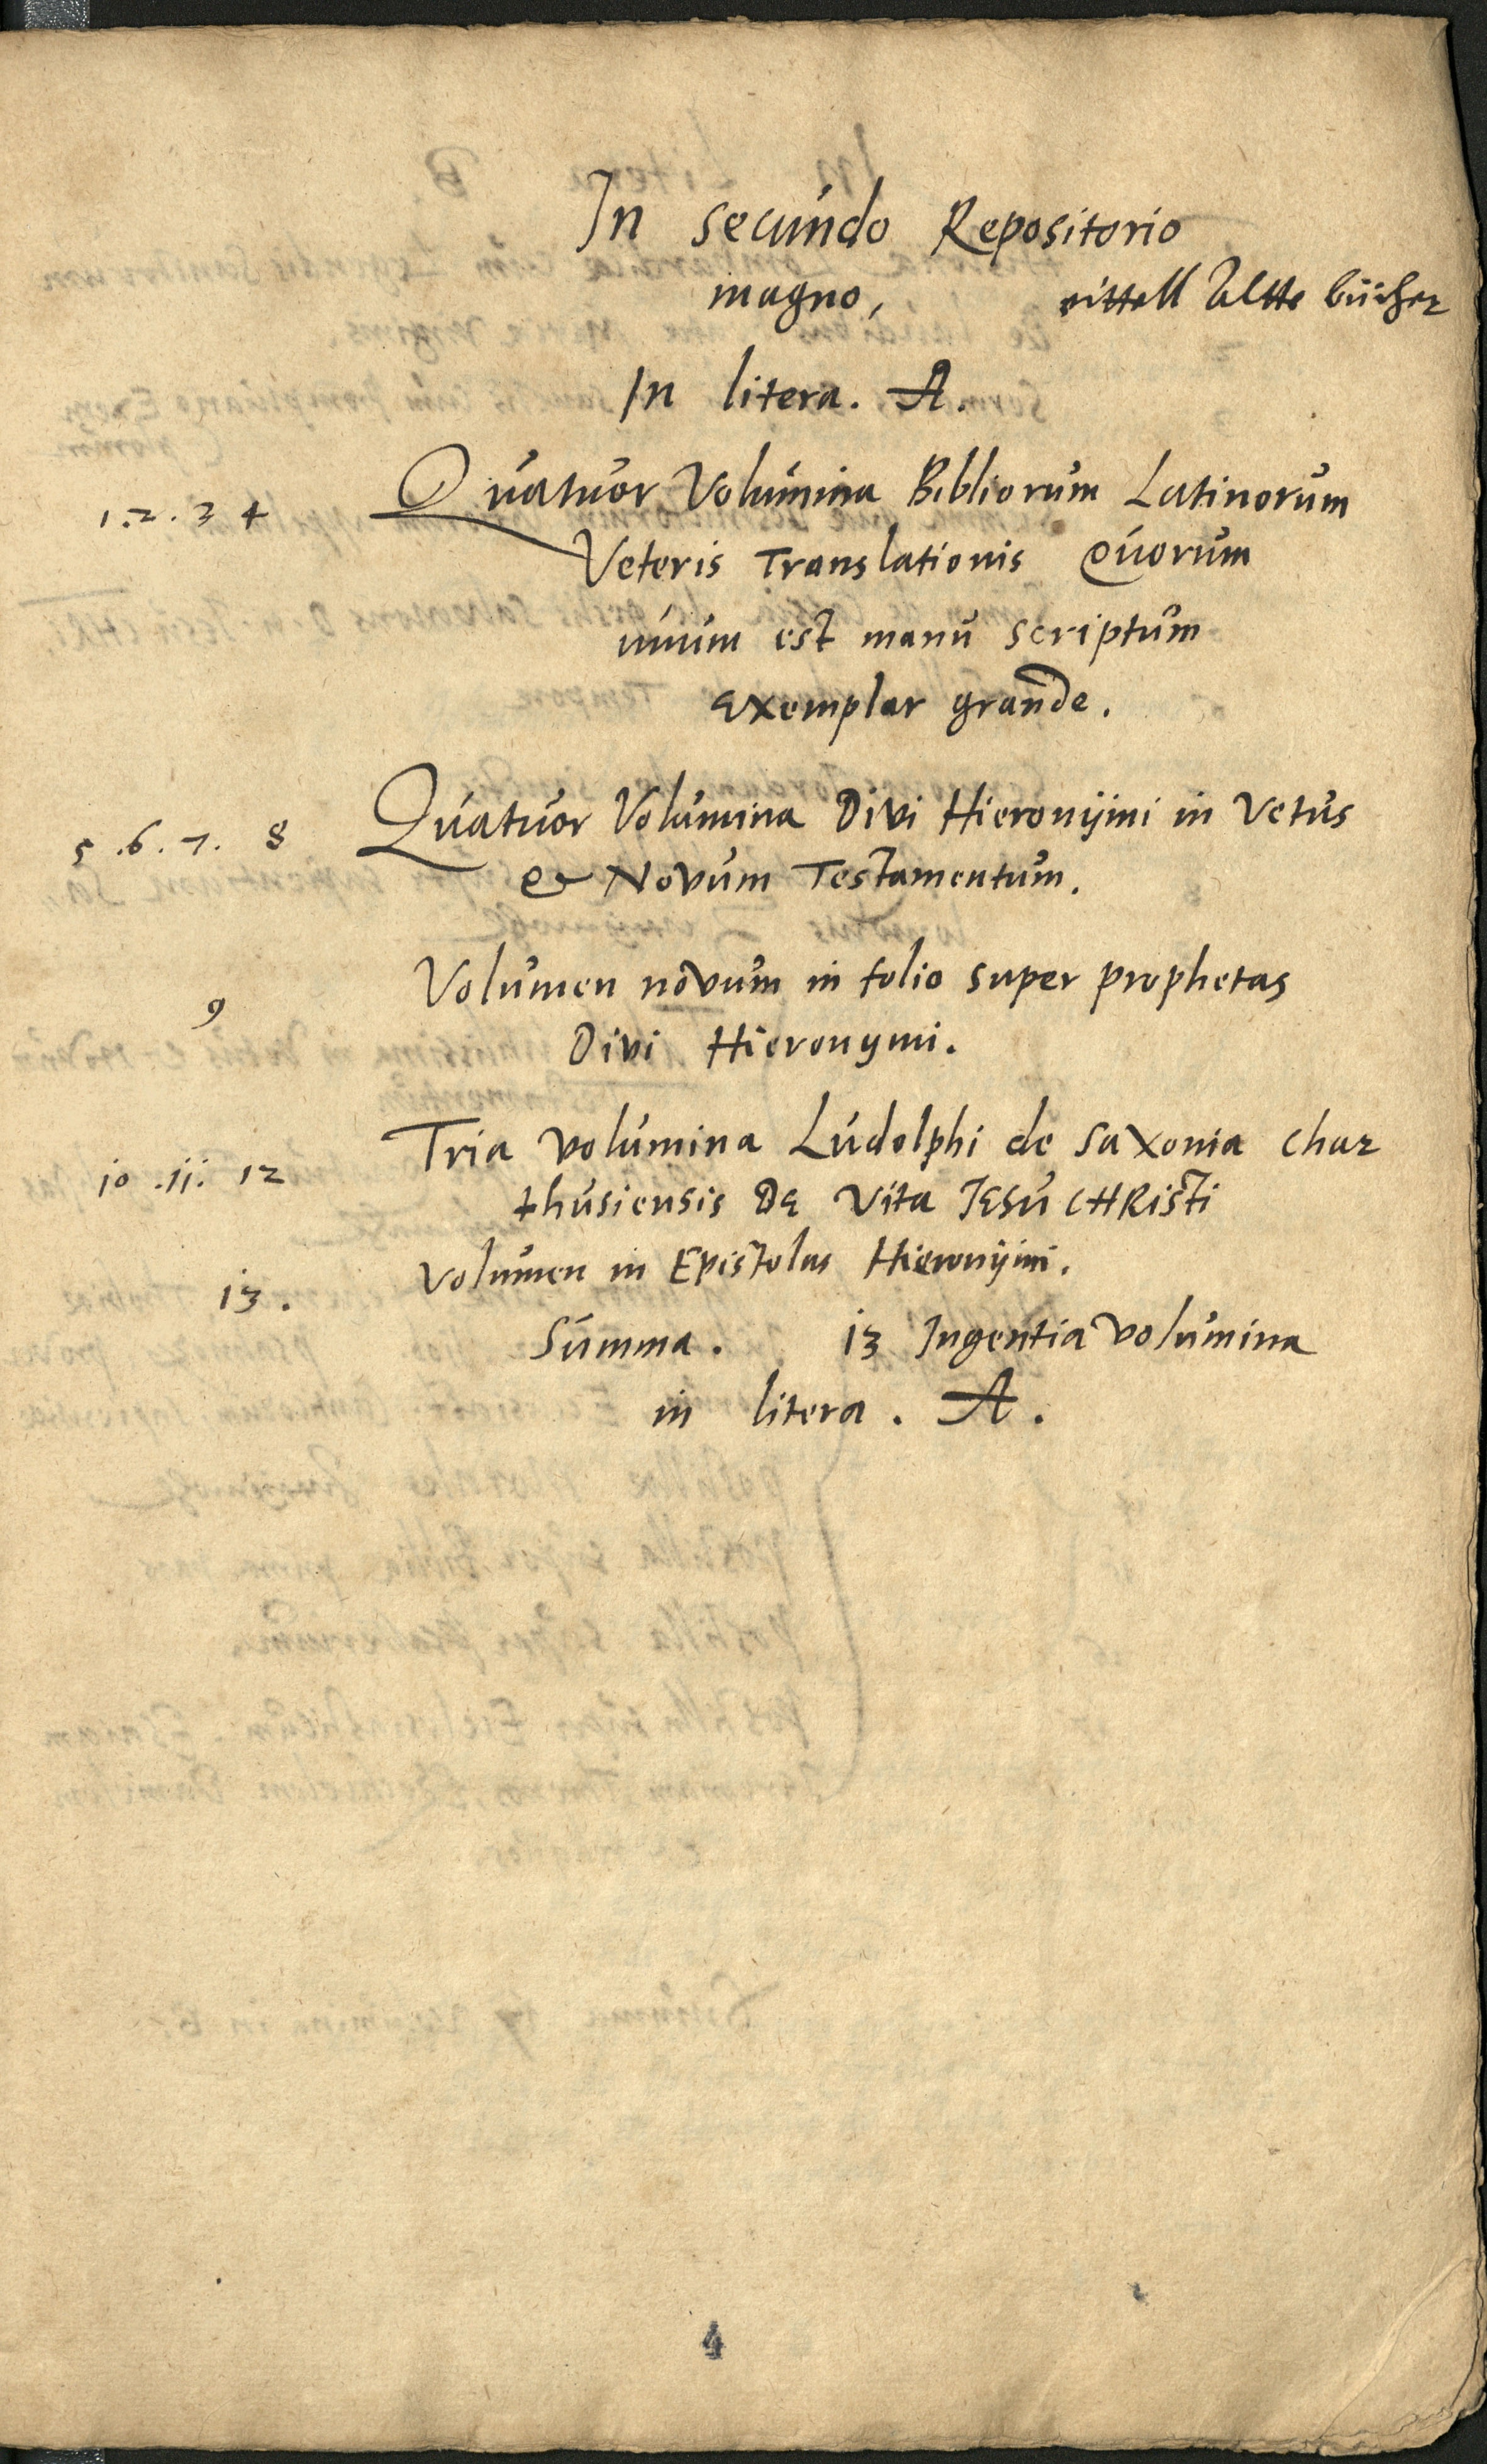 In secundo Repositorio
magno, eittell Altte bücher
In litera. A.
1.2.3 4 Quatuor Volumina Bibliorum Latinorum
Veteris Translationis Quorum
unum est manu scriptum
exemplar grande.
5.6.7. 8 Quatuor Volumina Divi Hieronÿmi in Vetus
et Novum Testamentum.
9 Volumen novum in folio super prophetas
Divi Hieronymi.
10.11. 12 Tria volumina Ludolphi de Saxonia Char
thusiensis De Vita JESU CHRisti
13. Volumen in Epistolas Hieronÿmi.
Summa. 13 Ingentia volumina
in litera. A.
4